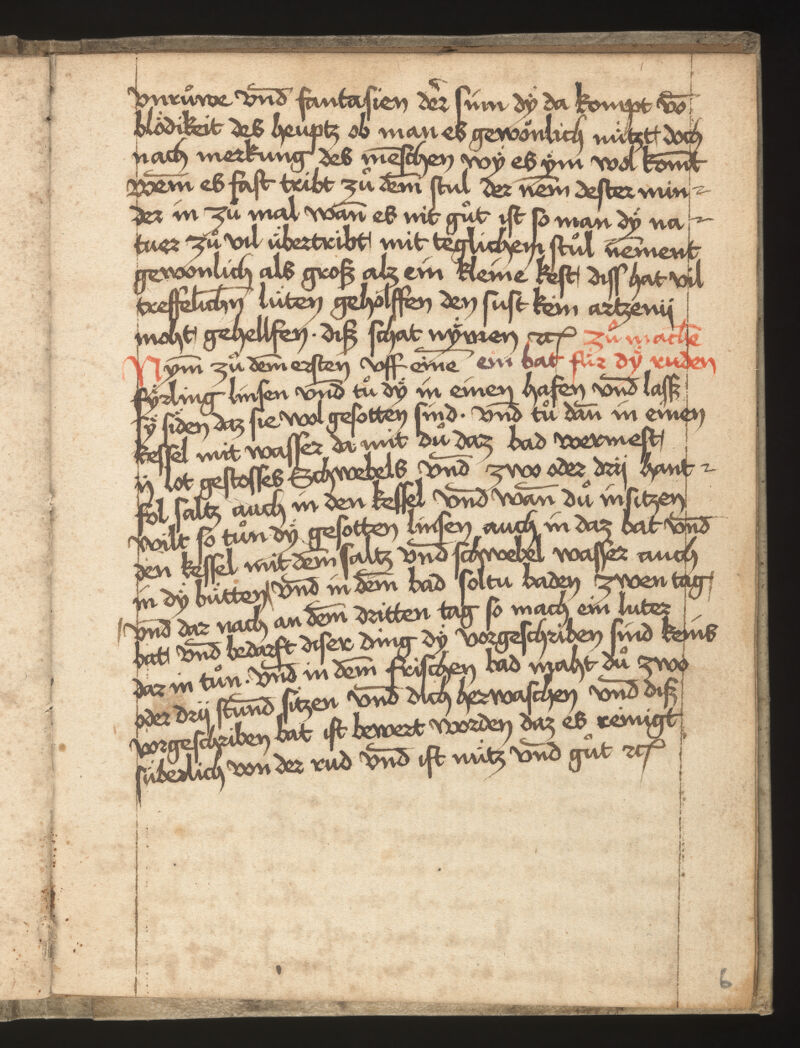 vnrůwe vnd̄ fantasien der̄ sinn dÿ da kompt vō
blödikeit des heuptz ob man es gewönlich nützt doch
nach merkung des mēschen wÿ es ÿm wol kom̄t
Wem̄ es fast tribt zů dem̄ stul der nem̄ dester min⸗
der in zů mal wan̄ es nit gůt ist so man dÿ na⸗
tuer zů vil übertribt mit teglichem stůl nēment
gewönlich als groß alz ein kleine kest diss hat vil
treffelichn̄ lüten gehölffen den sust kein artzenij
moht gehellfen · diß schat nÿmen ⁊c zů machē
Nym̄ zů dem̄ ersten vff einē ein bat für dÿ ruden
fÿrling linsen vnd tů dÿ in einen hafen vnd̄ lasß
sÿ siden daz sie wol gesotten sind · vnd tů dan̄ in einen
kessel mit wasser da mit dů daz bad wermest
ij lot gestosses Schwebels vnd̄ zwo oder drij hant⸗
fol saltz auch in den kessel vnd̄ wan̄ dů in sitzen
wilt so tůn dÿ gesotten linsen auch in daz bat vnd̄
den kessel mit dem̄ saltz vnd̄ schwebel wasser auch
in dÿ bütten vnd̄ in dem̄ bad soltu baden zwen tag
vnd̄ dar nach an dem̄ dritten tag so mach ein luter
bat vnd̄ bedarft diser ding dÿ vorgeschriben sind keins
dar in tůn · vnd̄ in dem̄ frischen bad maht dů zwo
oder drij stund̄ sitzen vnd̄ dich herwaschen vnd̄ diß
vorgeschriben bat ist bewert worden daz es reinigt
süberlich von der rud vnd̄ ist nütz vnd̄ gůt ⁊c
6